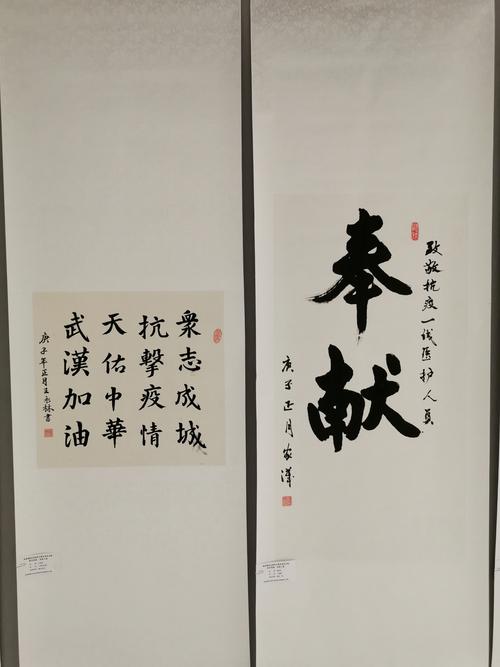 眾志成城
抗擊疫情
天佑中華
武漢加油
庚子年正月王永林書
致敬抗疫一线医护人员
奉献
庚子正月家漢